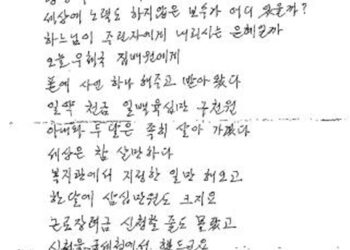 세상에 노력도 하지않은 보수가 어디 있을까?
하느님이 주린자에게 내리시는 은혜일까
오늘 우체국 집배원에게
폰에 사연 하나 해주고 받아왔다
일약 천금 일백육십만 구천원
아내와 두달은 족히 살아 가겠다
세상은 참 살만하다
복지관에서 지정한 일만 해오고
한달에 삼십만원도 크지요
근로장려금 신청할 줄도 몰랐고